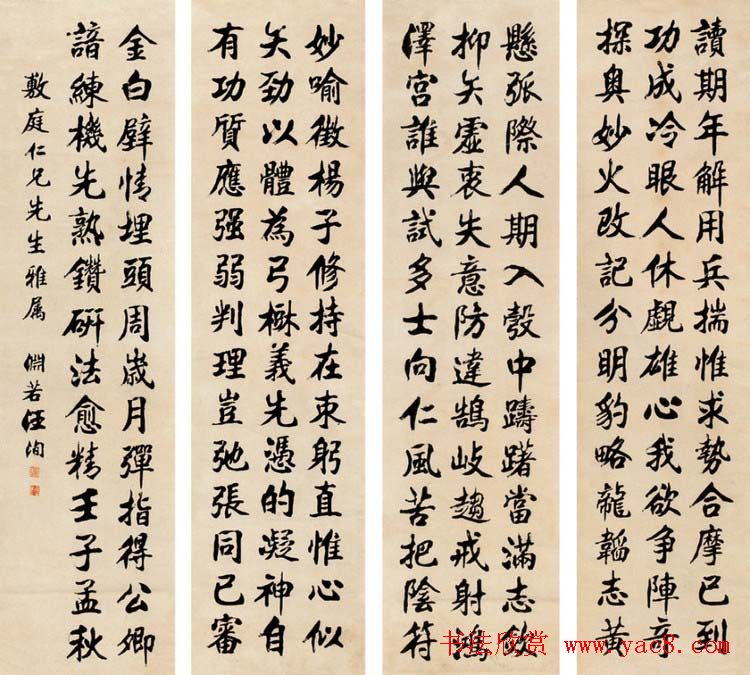 讀期年解用兵揣惟求勢合摩已到
功成冷眼人休覷雄心我欲争陣奇
探奥妙火改記分明豹略龍韜志黃
懸弧際人期入彀中躊躇當滿志斂
抑矢虛衷失意防違鵠岐趨戒射鴻
澤宮誰與試多士向仁風苦把陰符
妙喻徵楊子修持在束躬直惟心似
矢勁以體為弓楙義先憑的凝神自
有功質應强弱判理豈弛張同已審
金白璧情埋頭周歲月彈指得公卿
諳練機先熟鑽研法愈精壬子孟秋
敷庭仁兄先生雅属 淵若汪洵
书法欣赏 www.yac8.com